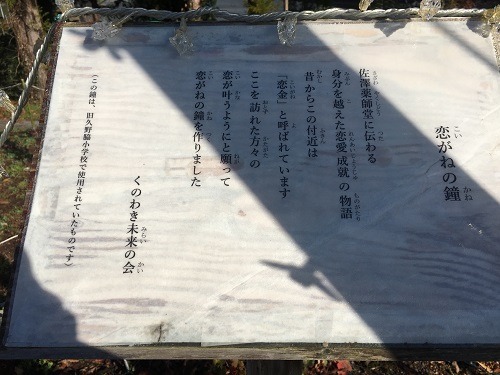 恋がねの鐘
佐澤薬師堂に伝わる
身分を越えた恋愛成就の物語
昔からこの付近は
「恋金」と呼ばれています
ここを訪れた方々の
恋が叶うようにと願って
恋がねの鐘を作りました
くのわき未来の会
(この鐘は、旧久野脇小学校で使用されていたものです)